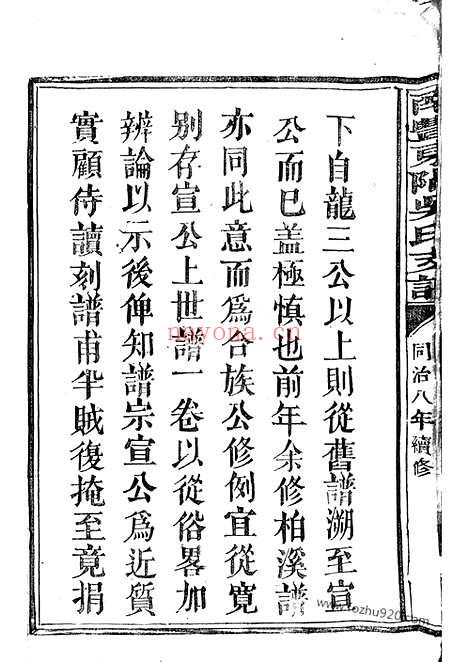 南豐東隅吳氏支譜
同治八年續修
下自龍三公以上則從舊譜溯至宣
公而已蓋極慎也前年余修柏溪譜
亦同此意而爲合族公修例宜從寬
別存宣公上世譜一卷以從俗畧加
辨論以示後俾知譜宗宣公爲近質
實顧侍讀刻譜甫半賊復掩至竟捐
nayona.cn
www.tozhu920.com